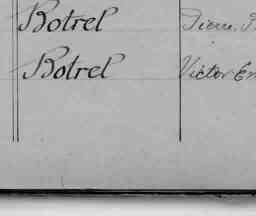 Botrel Pierre
Botrel Victor